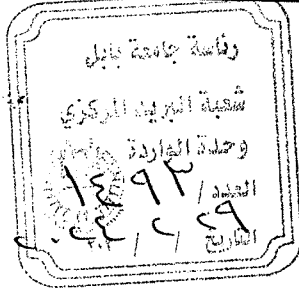 رئاسة جامعة بابل
شعبة البريد المركزي
وحدة الواردة
العدد / ١٤٩٣
التاريخ ٢٩ / ٢ / ٢٠٢٤